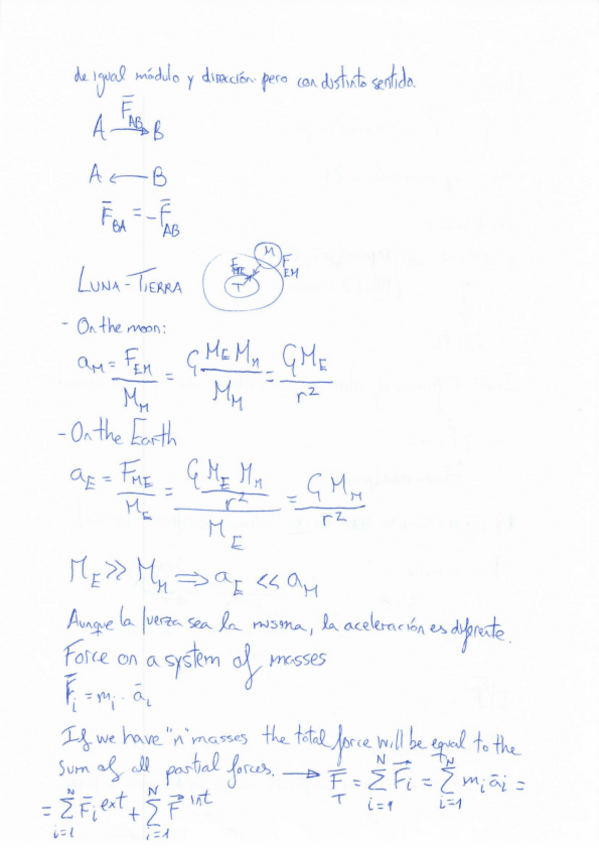 de igual módulo y dirección pero con distinto sentido.
F̅_AB
A ⟶ B
A ⟵ B
F̅_BA = -F̅_AB
LUNA-TIERRA
M
F_EM
F_ME
T
- On the moon:
a_M = F_EM / M_M = G M_E M_M / M_M = G M_E / r²
- On the Earth
a_E = F_ME / M_E = (G M_E M_M / r²) / M_E = G M_M / r²
M_E >> M_M ⇒ a_E << a_M
Aunque la fuerza sea la misma, la aceleración es diferente.
Force on a system of masses
F̅_i = m_i · a̅_i
If we have "n" masses the total force will be equal to the
sum of all partial forces. ⟶ F̅_T = Σ_{i=1}^{N} F⃗_i = Σ_{i=1}^{N} m_i a̅_i =
= Σ_{i=1}^{N} F̅_i^ext + Σ_{i=1}^{N} F⃗^int